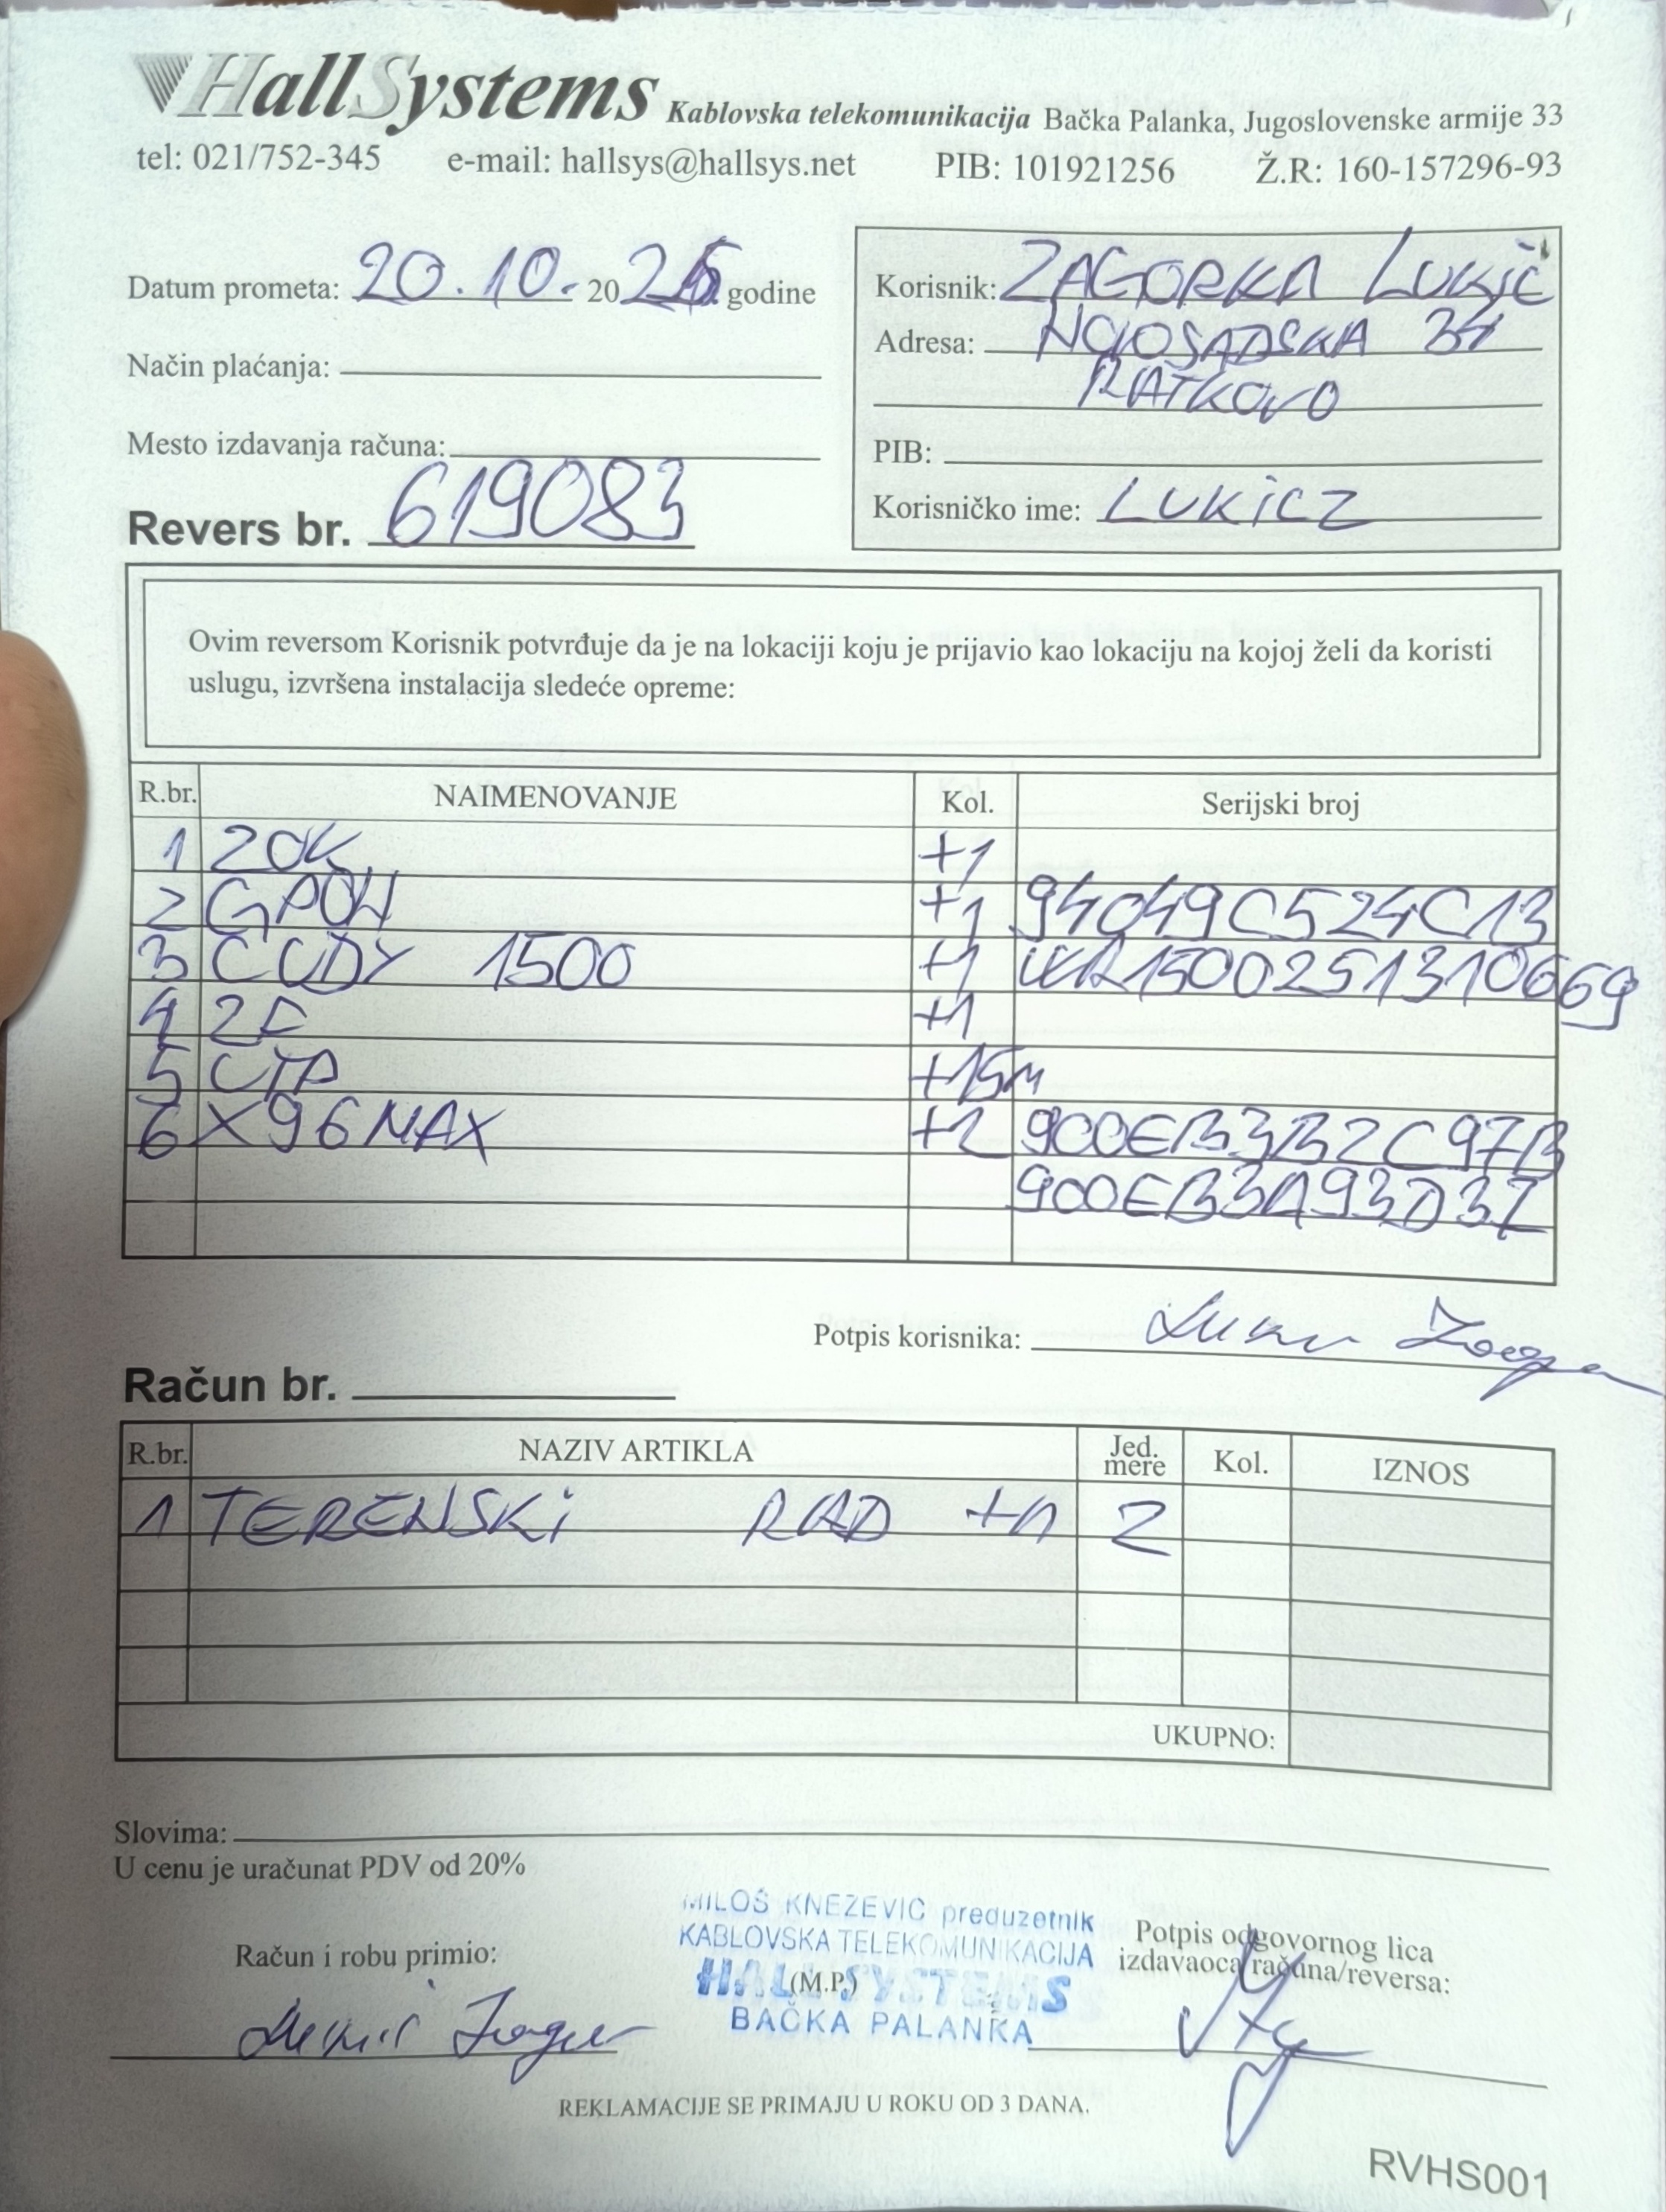 HallSystems Kablovska telekomunikacija Bačka Palanka, Jugoslovenske armije 33
tel: 021/752-345 e-mail: hallsys@hallsys.net PIB: 101921256 Ž.R: 160-157296-93
Datum prometa: 20.10. 20 godine
Način plaćanja:
Mesto izdavanja računa:
Revers br. 619083
Korisnik: ZAGORKA LUKIĆ
Adresa: NOVOSADSKA
RATKOVO
PIB:
Korisničko ime: LUKICZ
Ovim reversom Korisnik potvrđuje da je na lokaciji koju je prijavio kao lokaciju na kojoj želi da koristi
uslugu, izvršena instalacija sledeće opreme:
R.br. NAIMENOVANJE Kol. Serijski broj
1 ZOK +1
2 GPON +1 94049C524C13
3 CUDY 1500 +1 WR1500251310669
4 2F +1
5 UTP +15m
6 X96MAX +2 900EB3B2C97B
900EB3A93D3
Potpis korisnika:
Račun br.
R.br. NAZIV ARTIKLA Jed. mere Kol. IZNOS
1 TERENSKI RAD +1 Z
UKUPNO:
Slovima:
U cenu je uračunat PDV od 20%
Račun i robu primio:
MILOŠ KNEZEVIĆ preduzetnik
KABLOVSKA TELEKOMUNIKACIJA
HALL SYSTEMS
(M.P.)
BAČKA PALANKA
Potpis odgovornog lica
izdavaoca računa/reversa:
REKLAMACIJE SE PRIMAJU U ROKU OD 3 DANA.
RVHS001